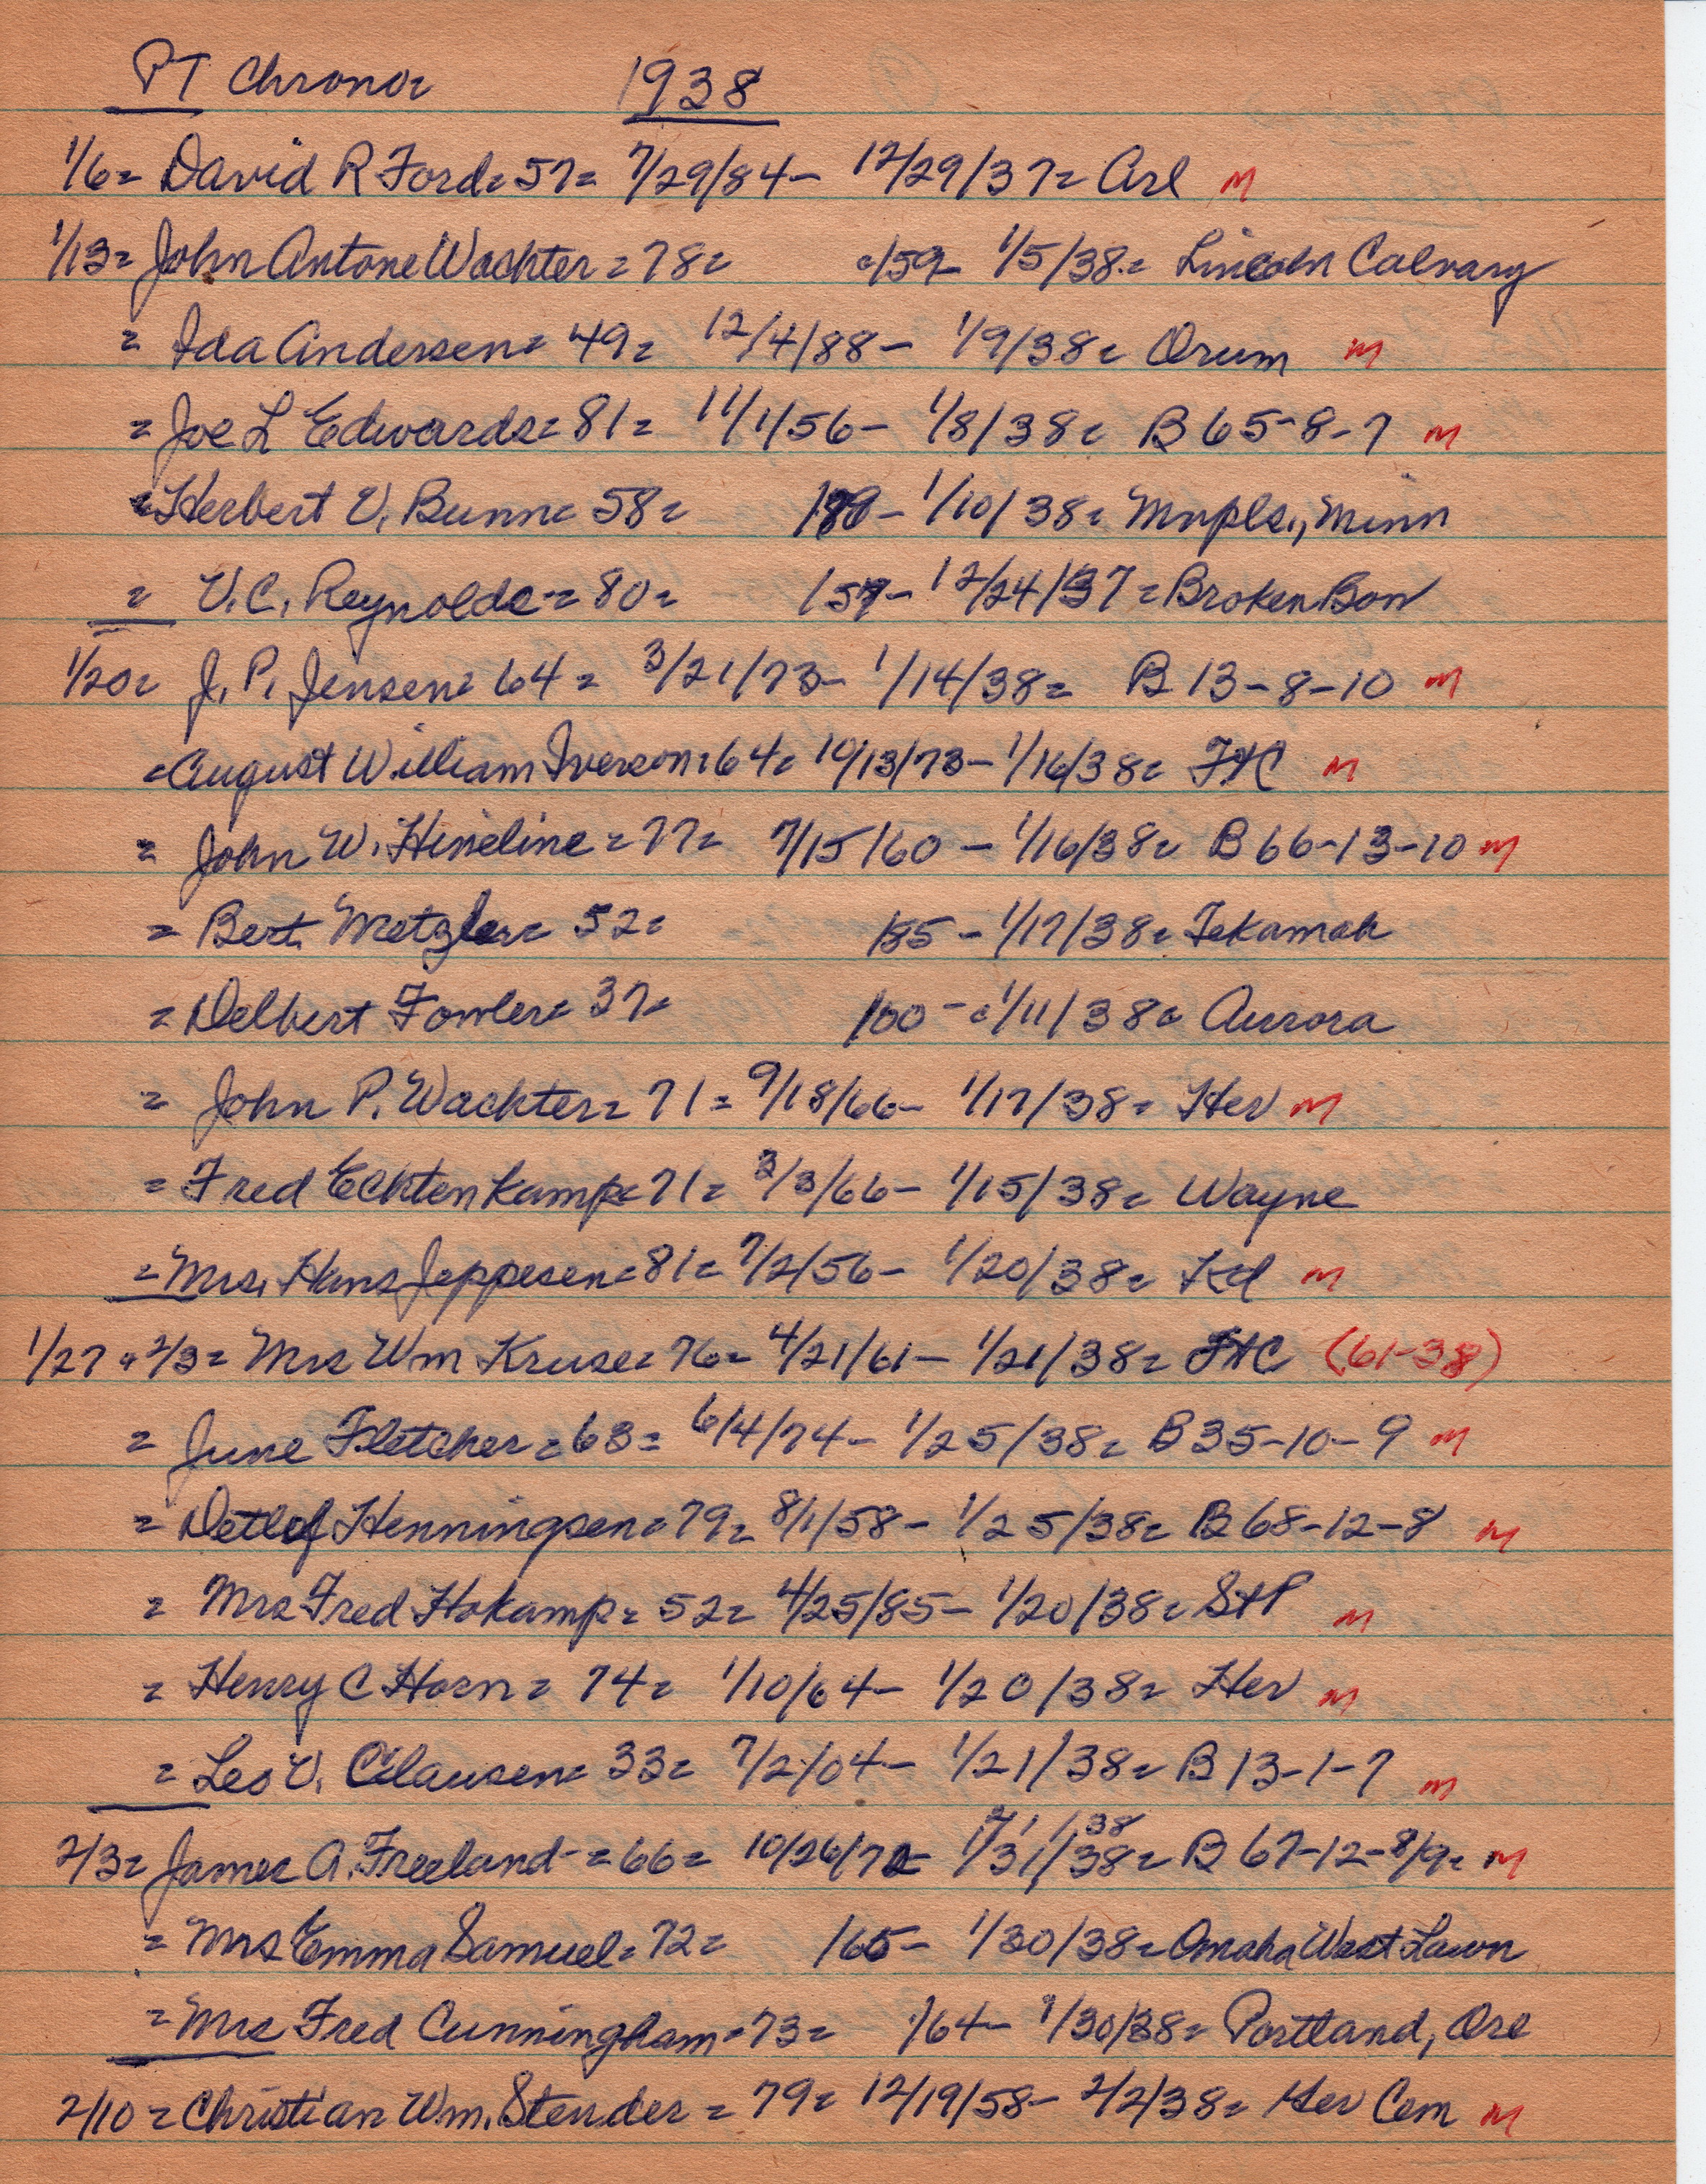 PT Chrono= 1938
1/6= David R Ford= 57= 7/29/84- 12/29/37= Arl M
1/13= John Antone Wachter = 78= c/59- 1/5/38= Lincoln Calvary
= Ida Andersen= 49= 12/4/88- 1/9/38= Orum M
= Joe L Edwards= 81= 11/1/56- 1/8/38= B 65-8-7 M
=Herbert V. Bunn= 58= - 1/10/38= Mnpls., Minn
= V.C. Reynolds= 80= /57- 12/24/37= Broken Bow
1/20= J. P. Jensen= 64= 3/21/73- 1/14/38= B 13-8-10 M
=August William Iverson=64= 10/13/73- 1/16/38= FHC M
= John W. Hineline = 77= 7/15/60 - 1/16/38= B 66-13-10 M
= Bert Metzler= 52= /85 - 1/17/38= Tekamah
= Delbert Fowler= 37= /00 - c1/11/38= Aurora
= John P. Wachter= 71= 9/18/66- 1/17/38= Her M
= Fred Echtenkamp= 71= 3/3/66- 1/15/38= Wayne
= Mrs. Hans Jeppesen= 81= 7/2/56- 1/20/38= Kd M
1/27 + 2/3= Mrs Wm Kruse= 76= 4/21/61- 1/21/38= FHC (61-38)
= June Fletcher = 63= 6/4/74- 1/25/38= B 35-10-9 M
= Detlef Henningsen= 79= 8/1/58- 1/25/38= B 68-12-8 M
= Mrs Fred Hokamp= 52= 4/25/85- 1/20/38= StP M
= Henry C Horn= 74= 1/10/64- 1/20/38= Her M
= Leo V. Clausen= 33= 7/2/04- 1/21/38= B 13-1-7 M
2/1/38
2/3= James A. Freeland= 66= 10/26/72- 1/31/38= B 67-12-8/9= M
= Mrs Emma Samuel= 72= /65- 1/30/38= Omaha West Lawn
= Mrs Fred Cunningham= 73= /64- 1/30/38= Portland, Ore
2/10= Christian Wm. Stender = 79= 12/19/58- 2/2/38= Her Cem M